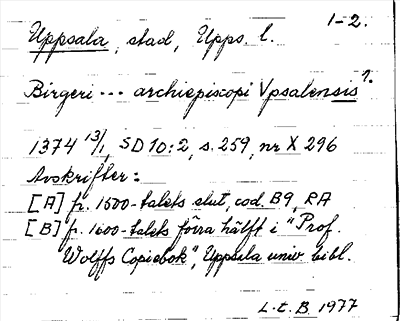 1-2.
Uppsala, stad, Upps. l.
Birgeri ... archiepiscopi Vpsalensis 1.
1374 13/1, SD 10:2, s. 259, nr X 296
Avskrifter:
[A] fr. 1500-talets slut, cod. B9, RA
[B] fr. 1600-talets förra hälft i "Prof.
Wolffs Copiebok", Uppsala univ. bibl.
L.t.B. 1977